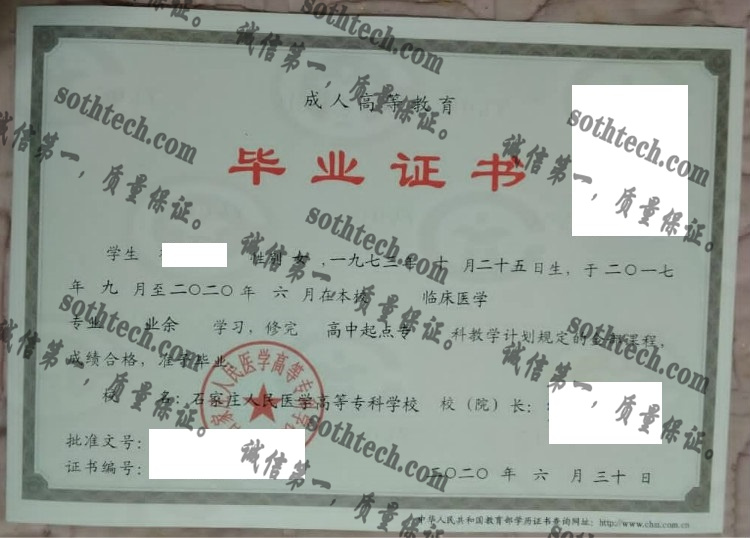 成人高等教育
毕业证书
学生 性别 女 ,一九七三年 十 月二十五日生,于二〇一七
年 九 月至二〇二〇年 六 月在本校 临床医学
专业 业余 学习,修完 高中起点专 科教学计划规定的全部课程,
成绩合格,准予毕业。
校 名:石家庄人民医学高等专科学校 校(院)长:
批准文号:
证书编号:
二〇二〇 年 六 月 三十 日
中华人民共和国教育部学历证书查询网址:http://www.chsi.com.cn
石家庄人民医学高等专科学校
sothtech.com
诚信第一,质量保证。
sothtech.com
诚信第一,质量保证。
sothtech.com
诚信第一,质量保证。
sothtech.com
诚信第一,质量保证。
sothtech.com
诚信第一,质量保证。
sothtech.com
诚信第一,质量保证。
sothtech.com
诚信第一,质量保证。